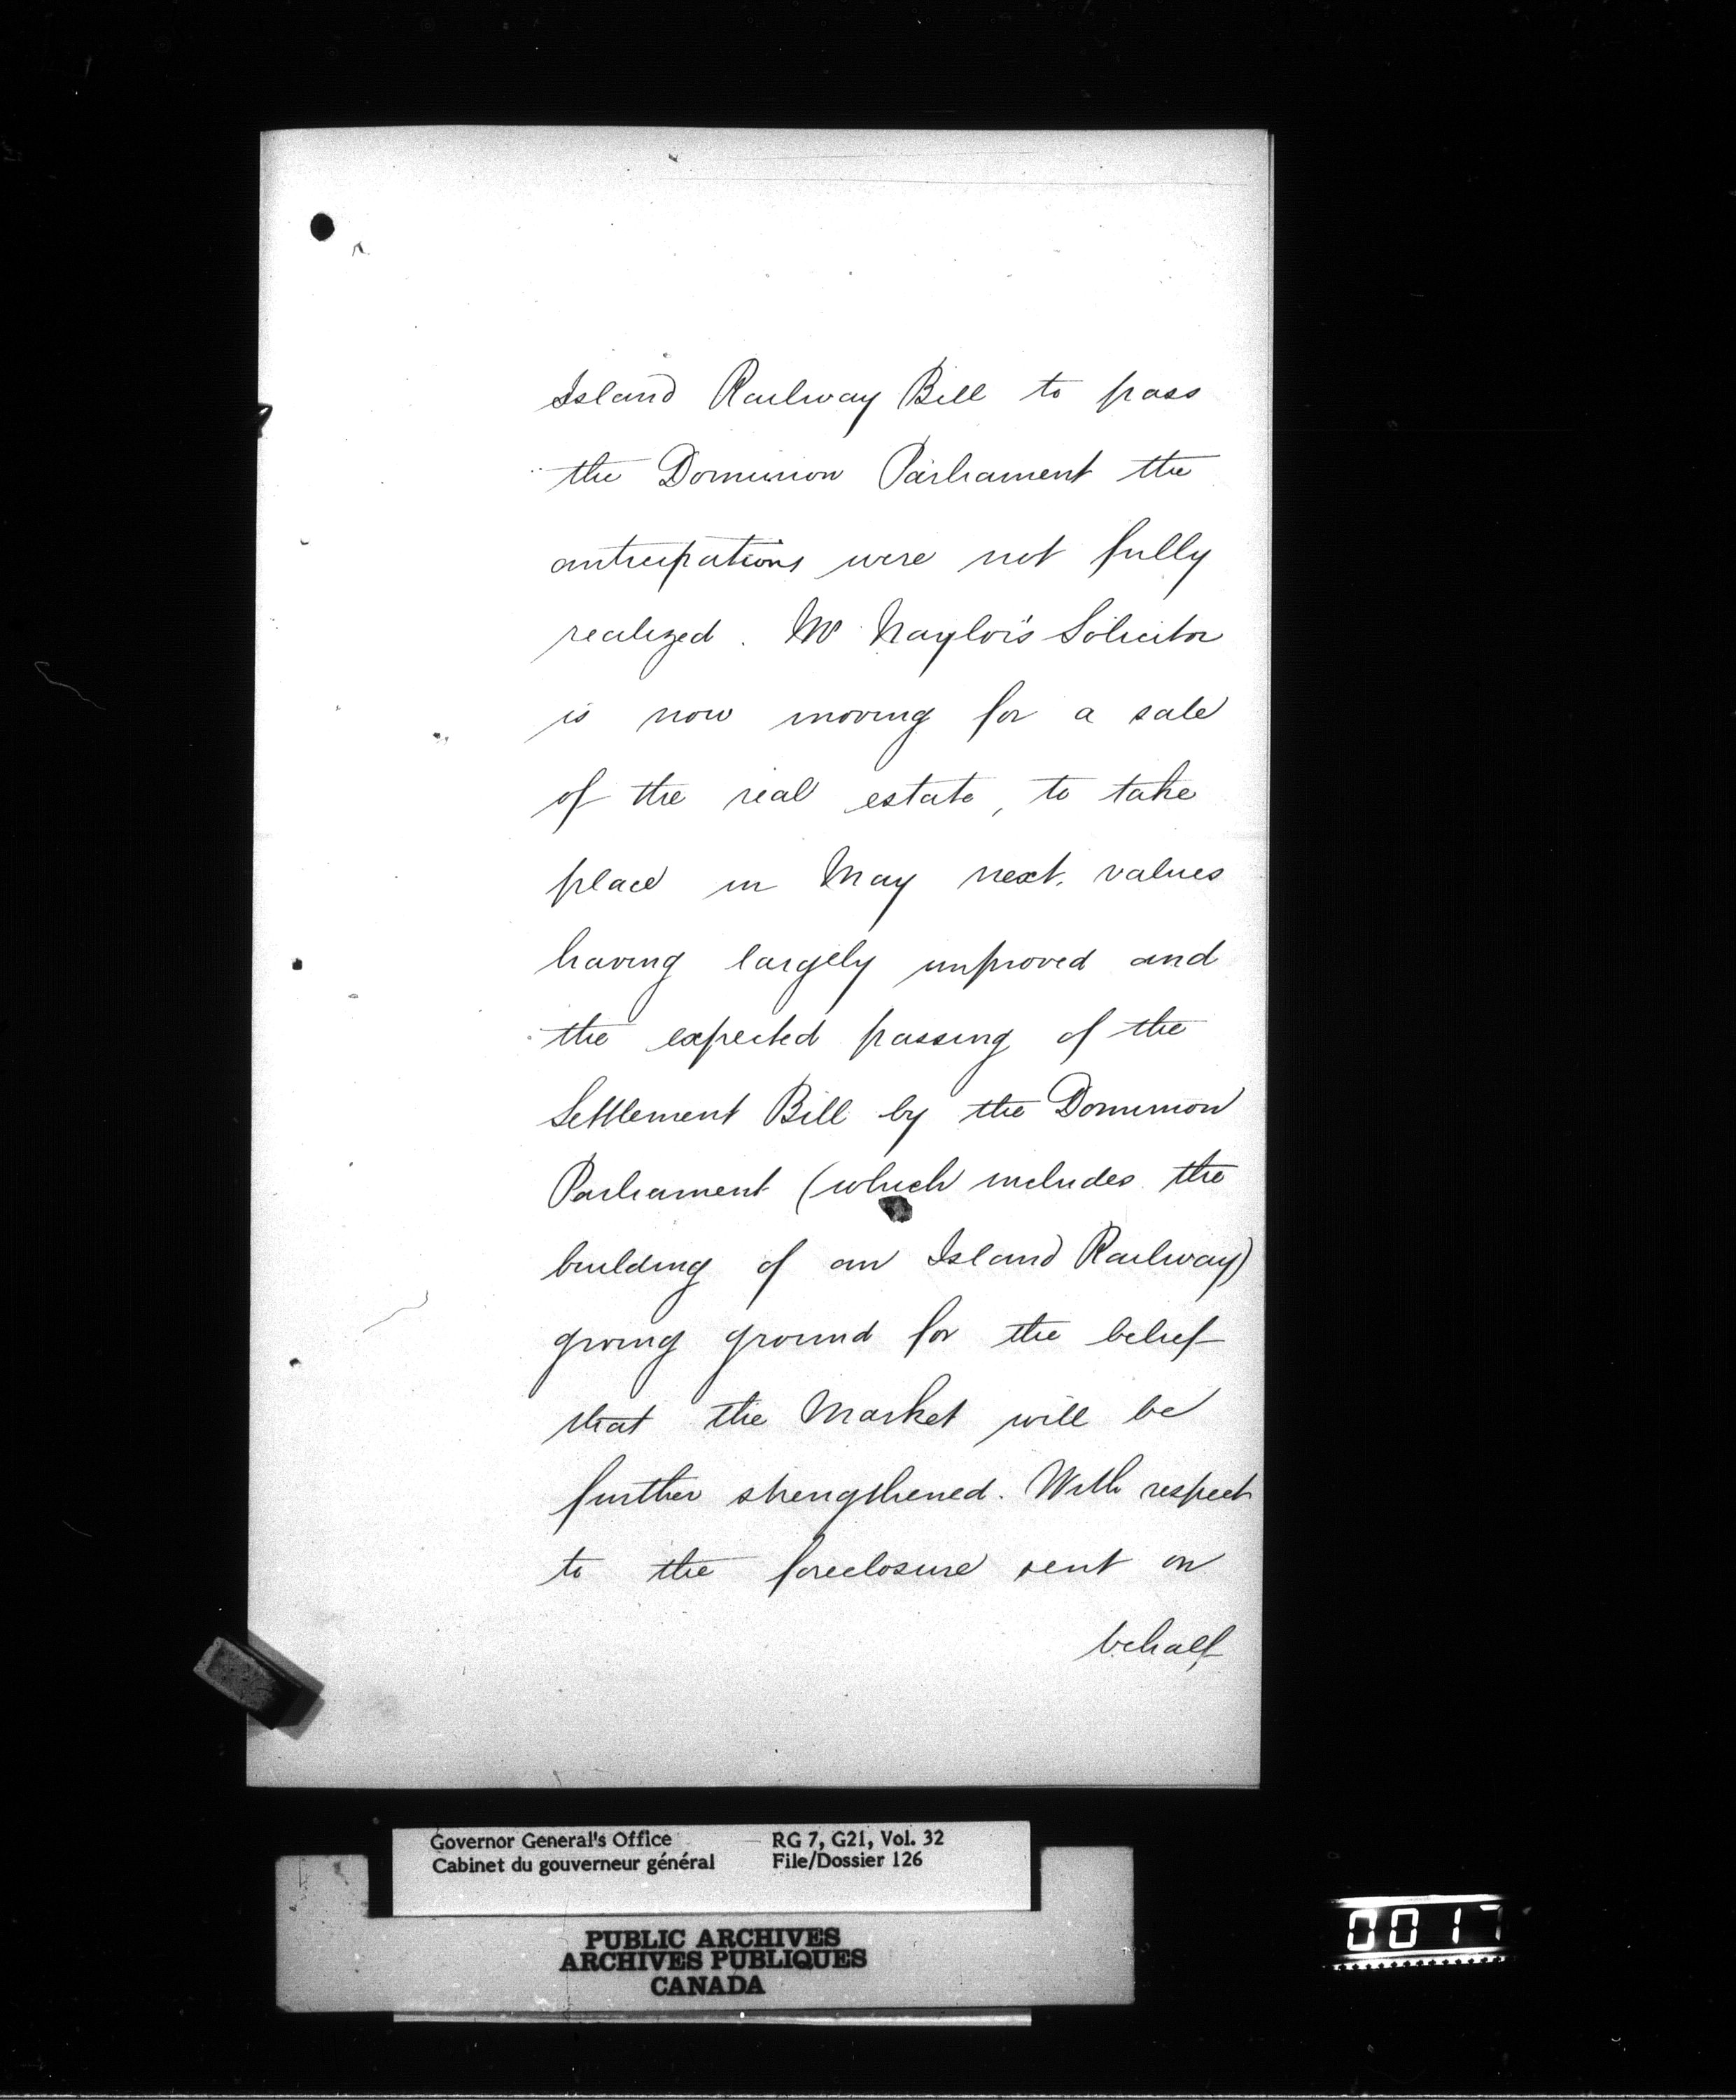 Island Railway Bill to pass
the Dominion Parliament the
anticipations were not fully
realized. Mr Naylor's Solicitor
is now moving for a sale
of the real estate, to take
place in May next. values
having largely improved and
the expected passing of the
Settlement Bill by the Dominion
Parliament (which includes the
building of an Island Railway)
giving ground for the belief
that the Market will be
further strengthened. With respect
to the foreclosure sent on
behalf
Governor General's Office RG 7, G21, Vol. 32
Cabinet du gouverneur général File/Dossier 126
PUBLIC ARCHIVES
ARCHIVES PUBLIQUES
CANADA
0017